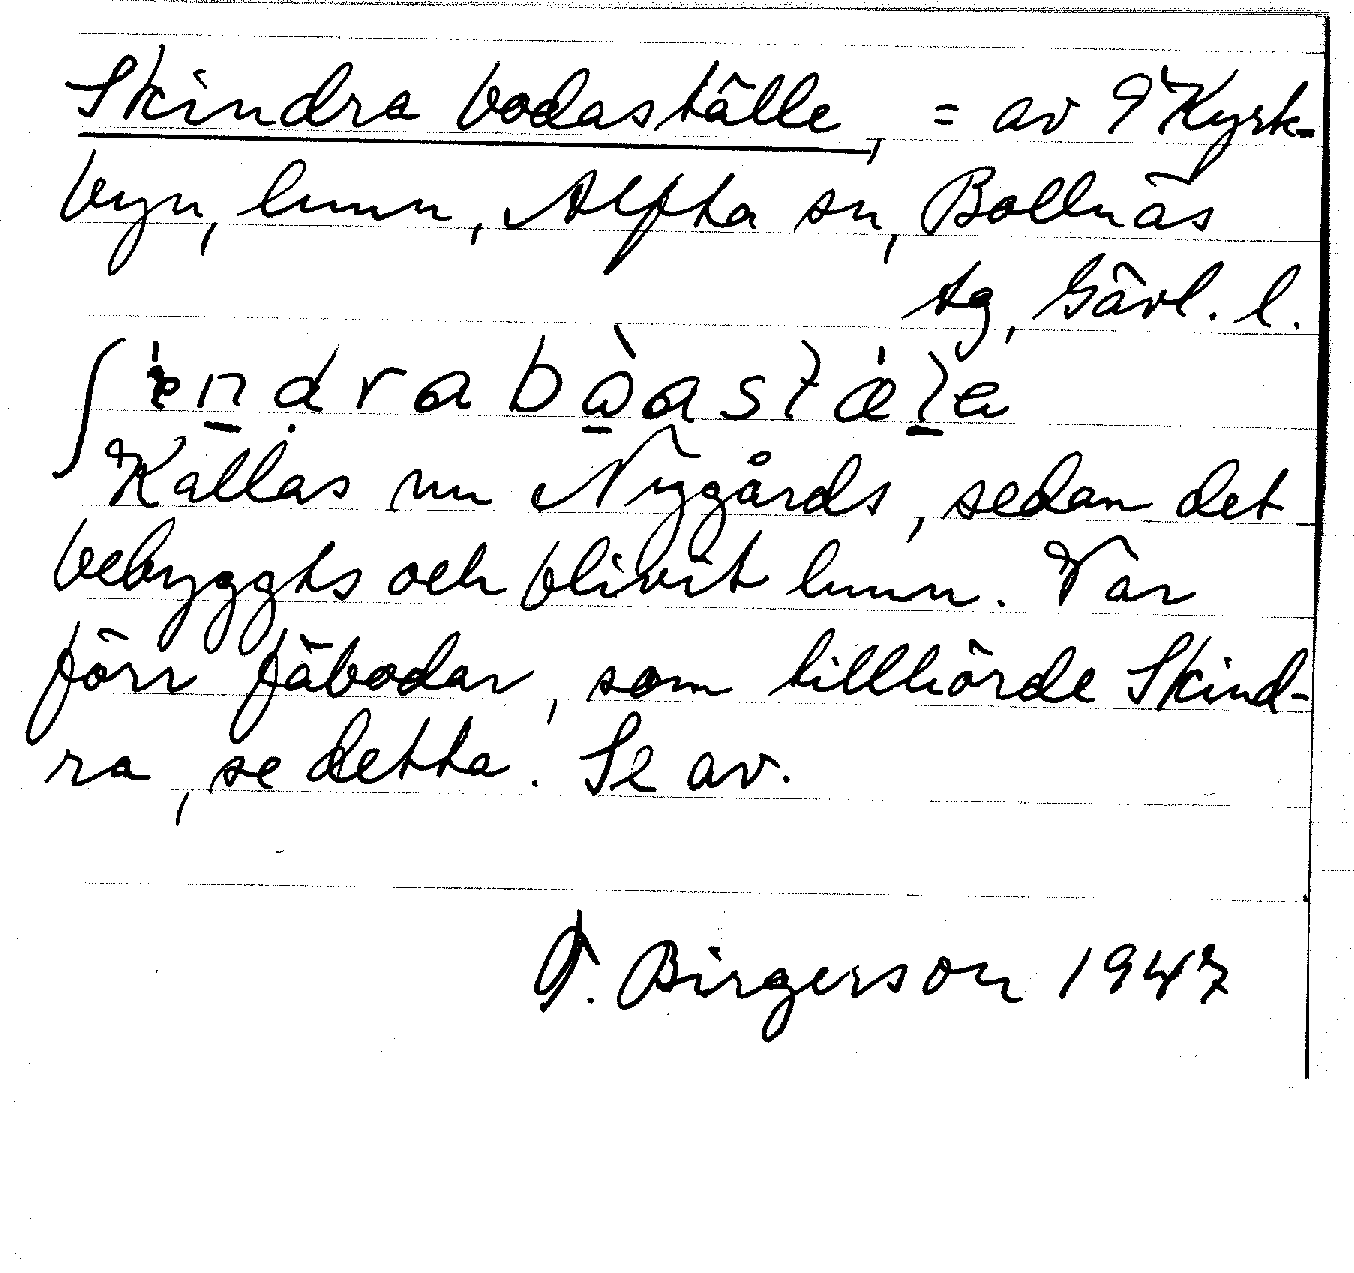 Skindra bodaställe, = av 9 Kyrk-
byn, lmn, Alfta sn, Bollnäs
tg, Gävl. l.
Kallas nu Nygårds, sedan det
bebyggts och blivit lmn. Var
förr fäbodar, som tillhörde Skind-
ra, se detta. Se av.
F. Birgerson 1947